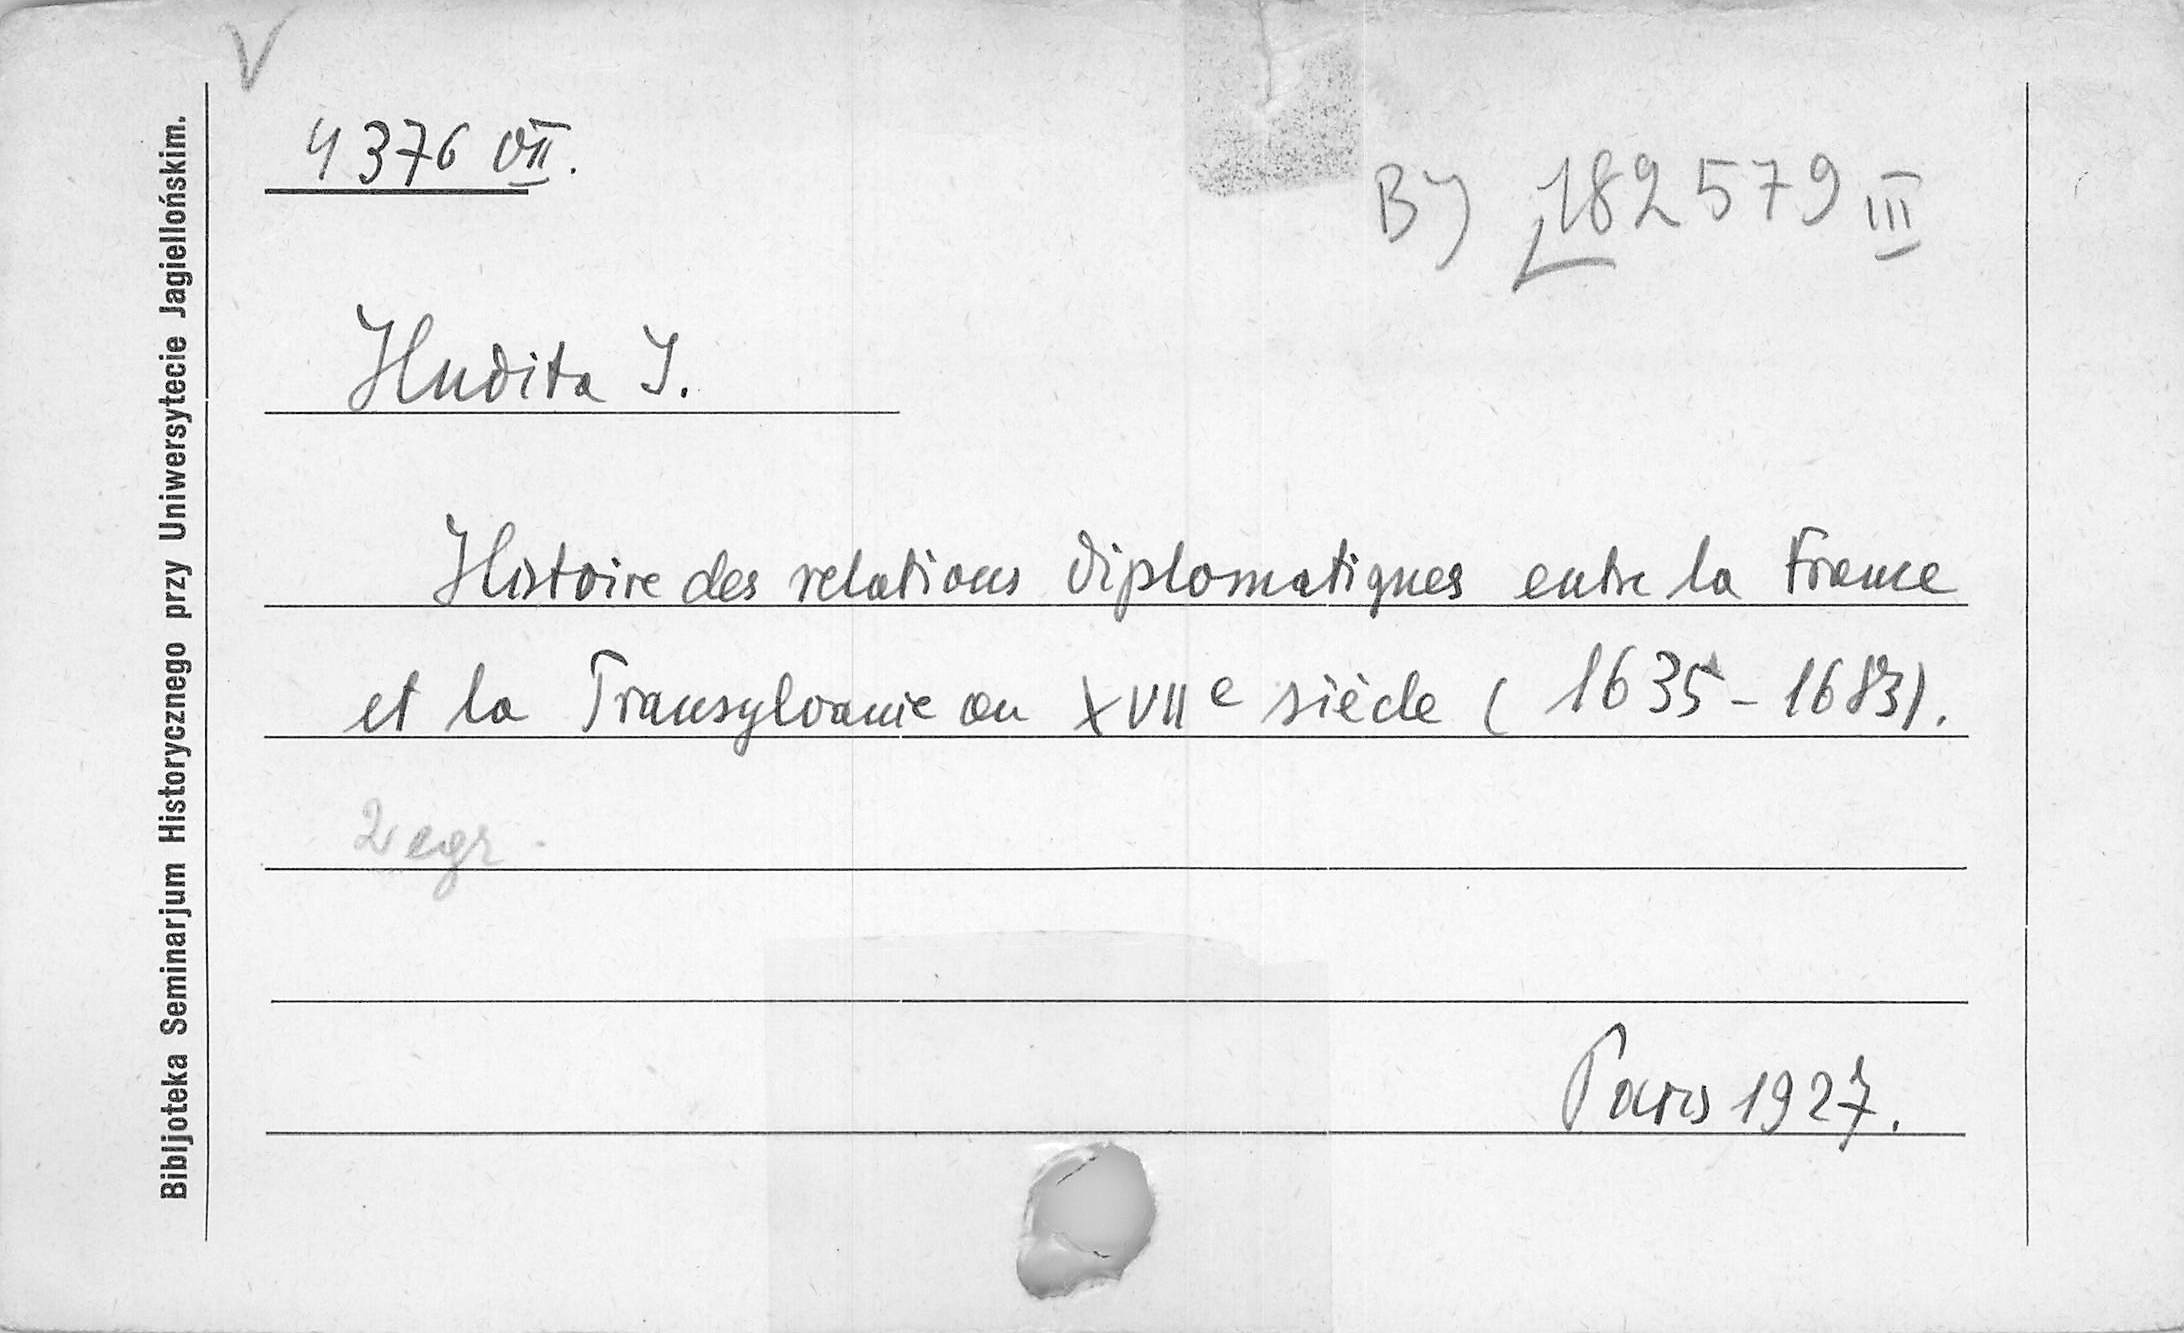 V
4376 VII.
BJ 182579 III
Hudita I.
Histoire des relations diplomatiques entre la France
et la Transylvanie au XVIIe siècle (1635-1683).
2 egz.
Paris 1927.
Bibljoteka Seminarjum Historycznego przy Uniwersytecie Jagiellońskim.